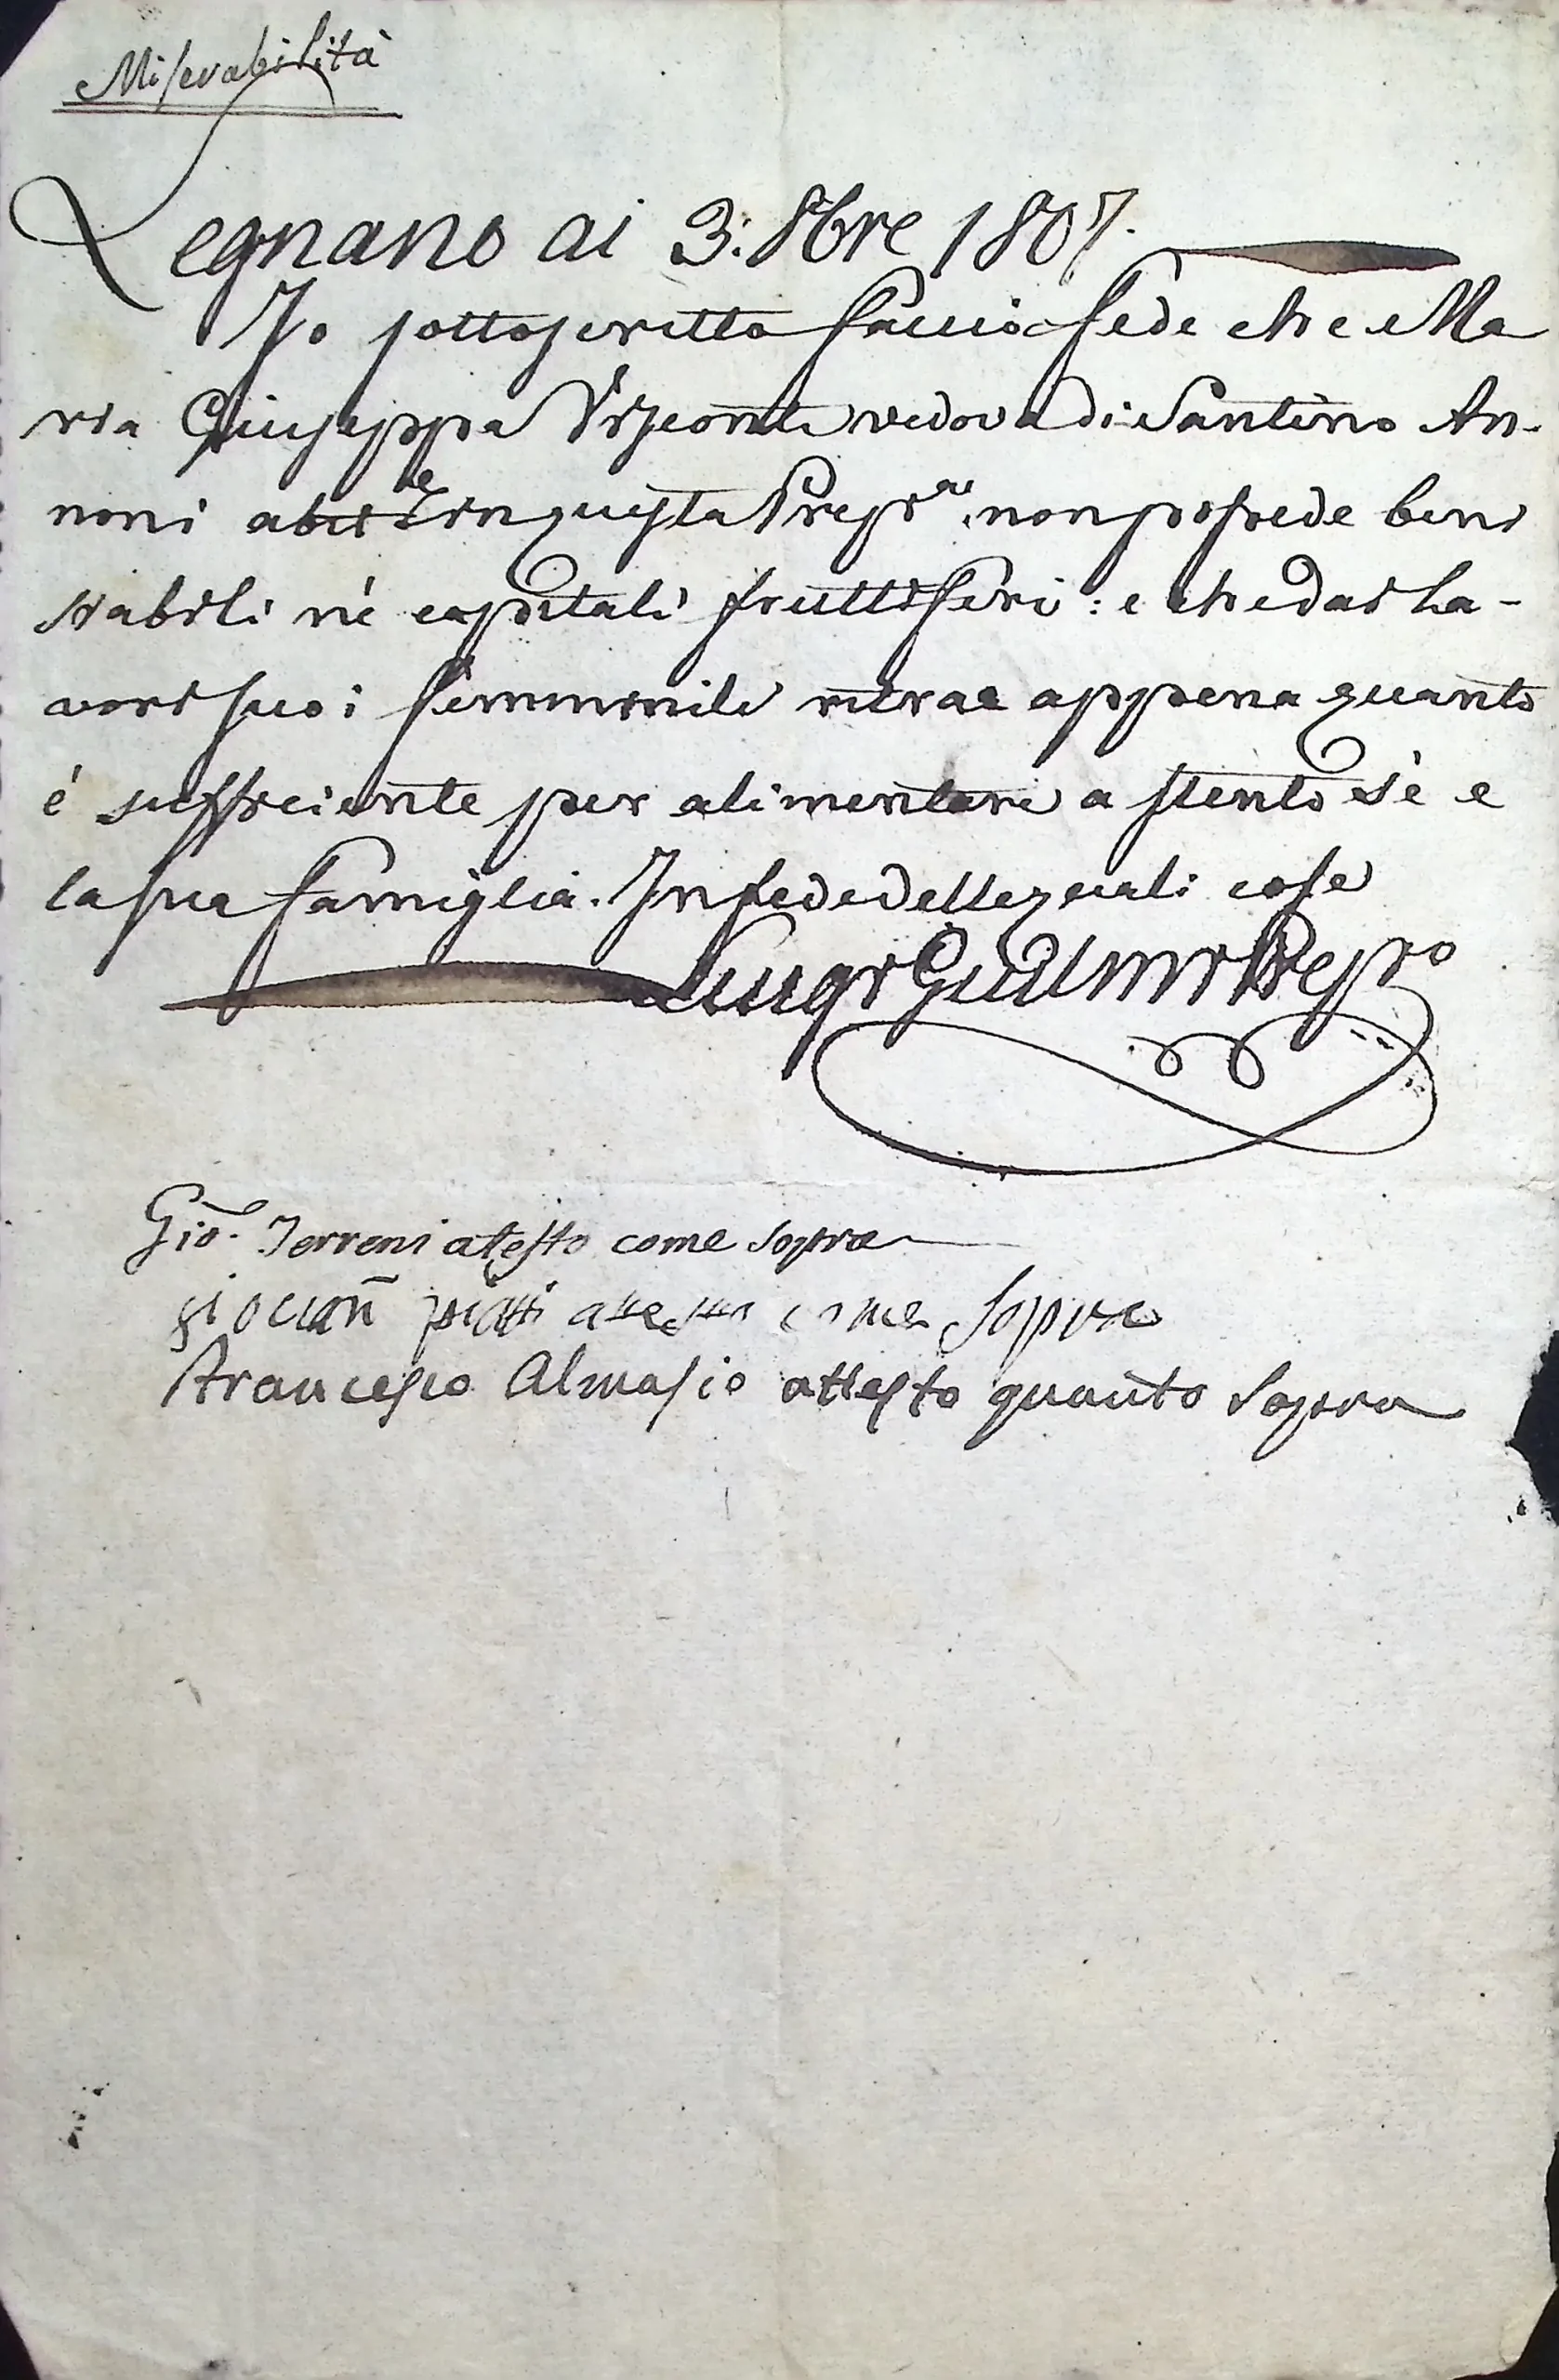 Miserabilità
Legnano ai 3: 8bre 1807.
Io sottoscritto faccio fede che Ma
ria Giuseppa Visconti vedova di Santino An-
noni abit.e in questa Prepr.a, non possede beni
stabili né capitali fruttiferi: e che dai La-
vori suoi femminili ritrae appena quanto
é sufficiente per alimentare a stento sé e
la sua famiglia. In fede delle quali cose
Luigi Prep.o
Gio. Terreni atesto come sopra
giovan piatti attesto come sopra
Francesco Almasio attesto quanto Sopra